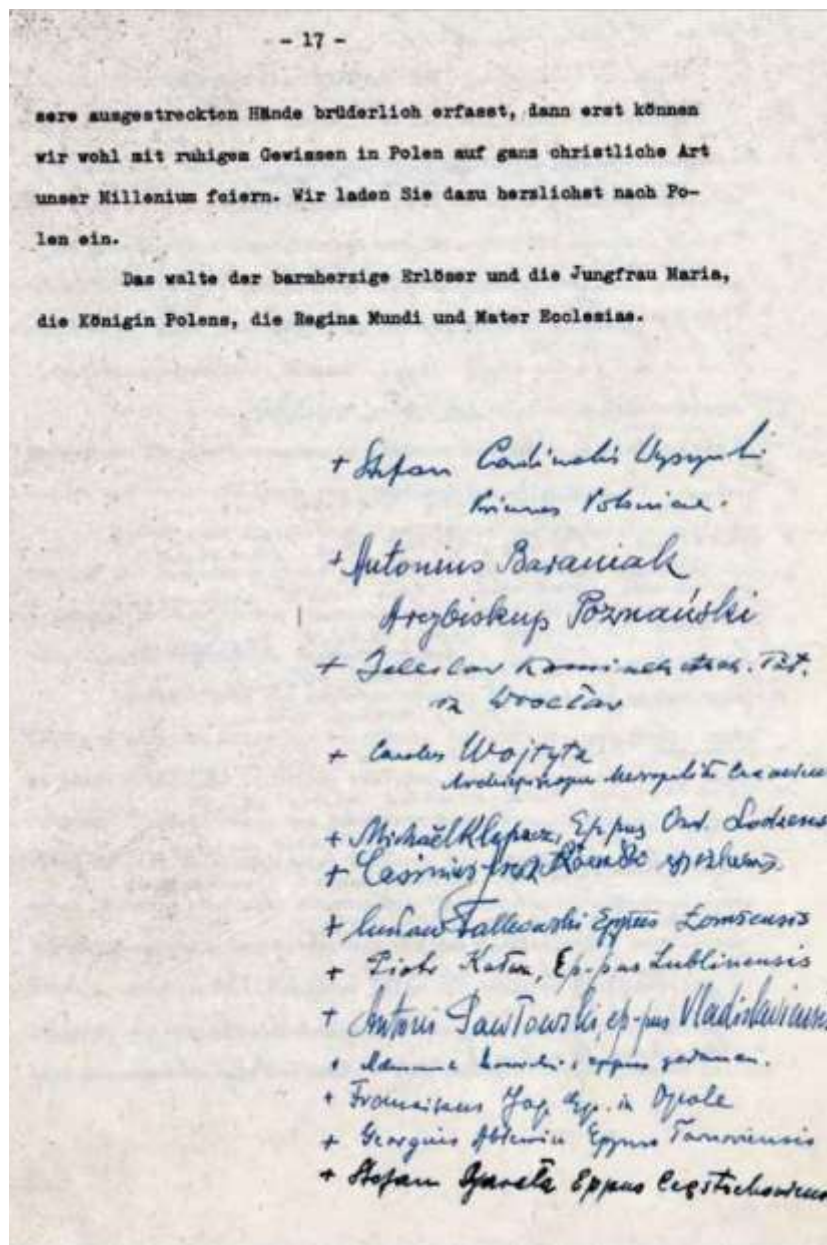 - 17 -
sere ausgestreckten Hände brüderlich erfasst, dann erst können
wir wohl mit ruhigem Gewissen in Polen auf ganz christliche Art
unser Millenium feiern. Wir laden Sie dazu herzlichst nach Po-
len ein.
Das walte der barmherzige Erlöser und die Jungfrau Maria,
die Königin Polens, die Regina Mundi und Mater Ecclesiae.
+ Stefan Cardinalis Wyszyński
Primas Poloniae.
+ Antonius Baraniak
Arcybiskup Poznański
+ Kominek Tit.
in Wrocław
+ Carolus Wojtyła
Metropolita
+ Michaël Klepacz, Ep-pus Ord. Lodzensis
+ Casimirus
+ Falkowski Eppus Łomżensis
+ Piotr Kałwa, Ep-pus Lublinensis
+ Antoni Pawłowski, ep-pus Vladislaviensis
+ eppus
+ Franciscus Jop Ep. in Opole
+ Georgius Ablewicz Eppus Tarnoviensis
+ Stefan Bareła Eppus